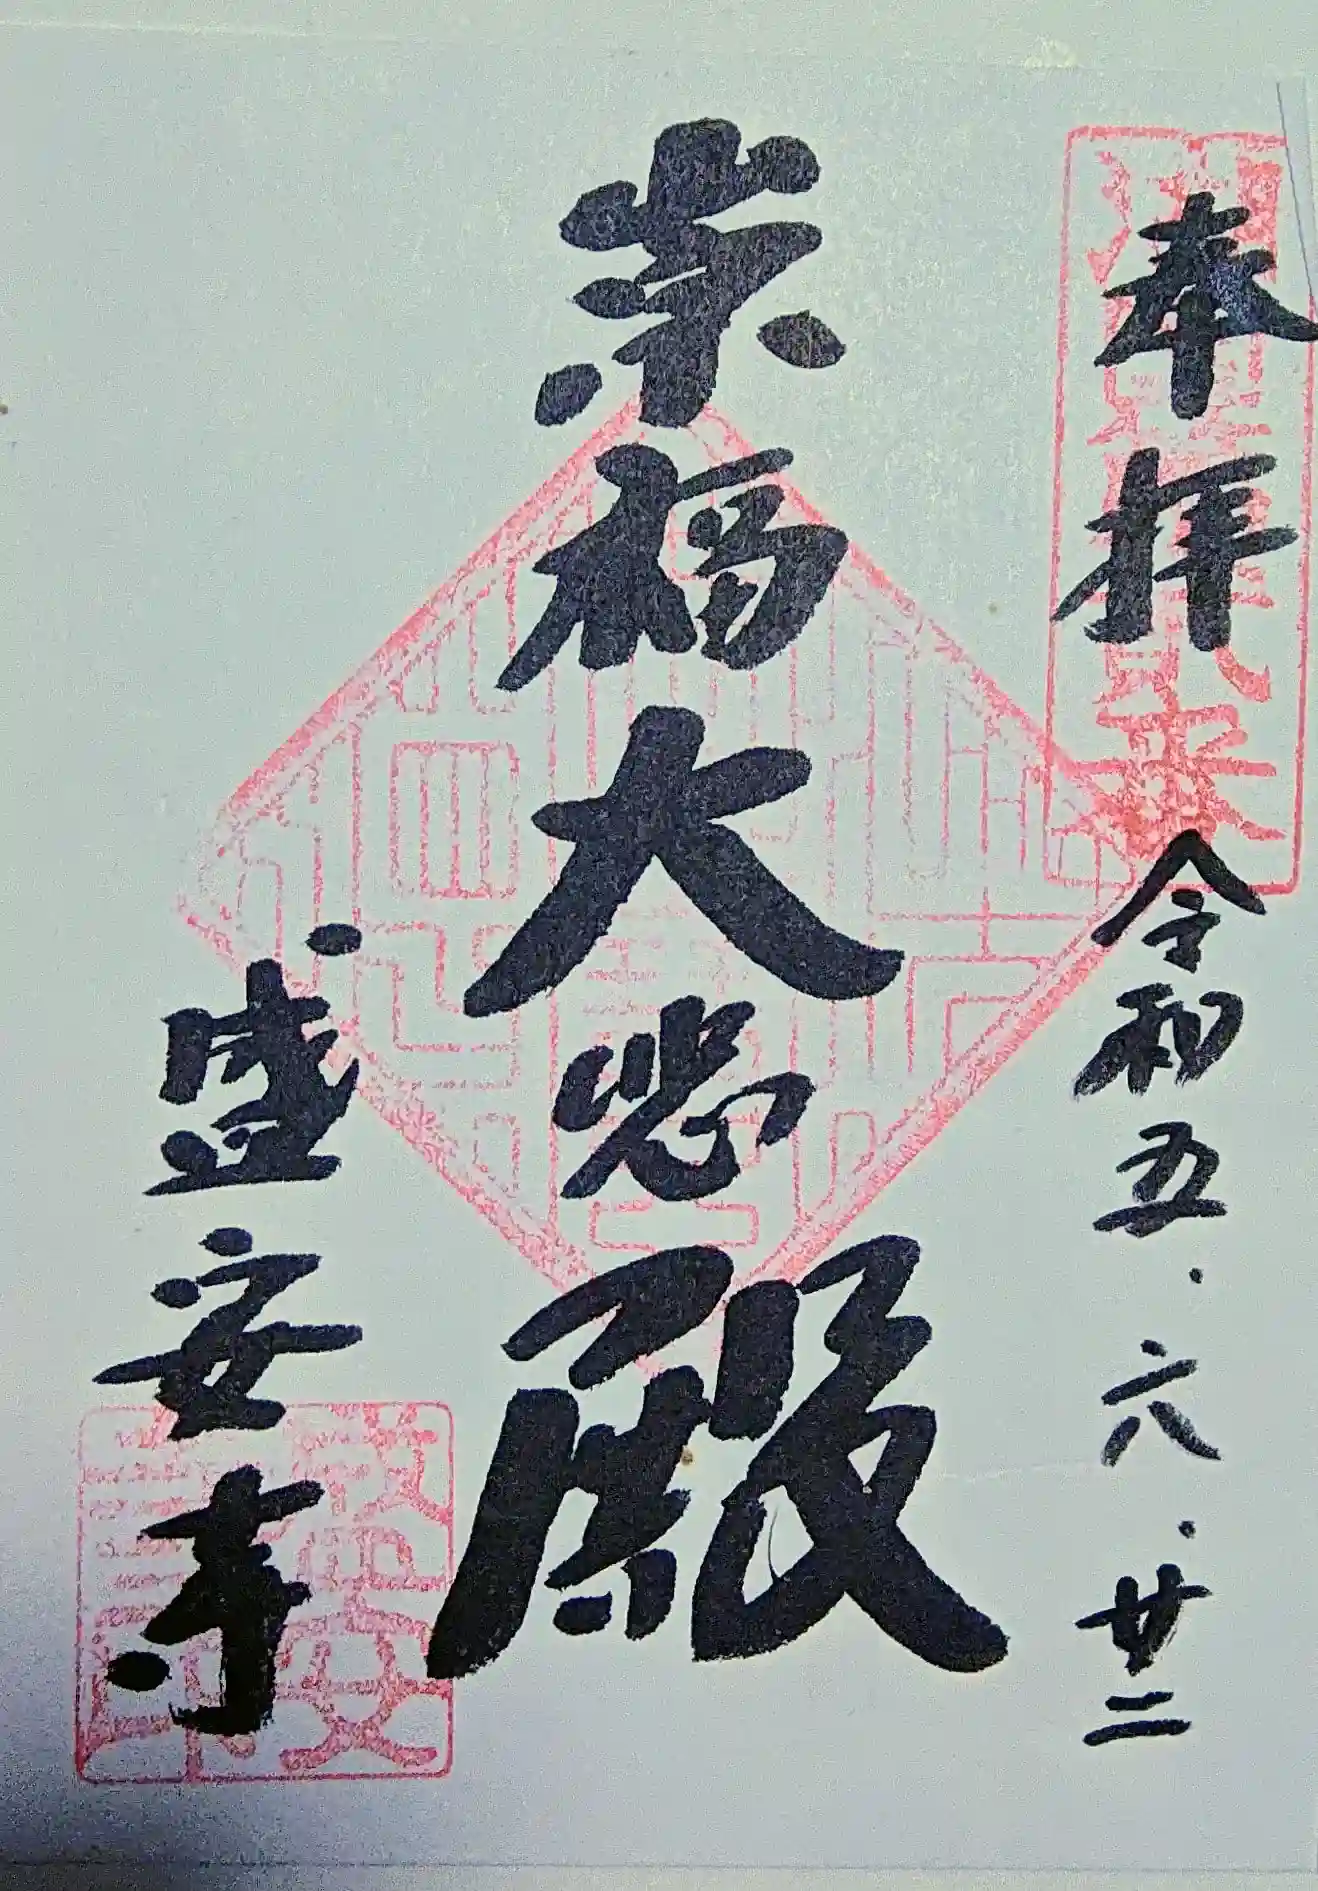 奉拝
令和五.六.廿二
崇福大悲殿
盛安寺